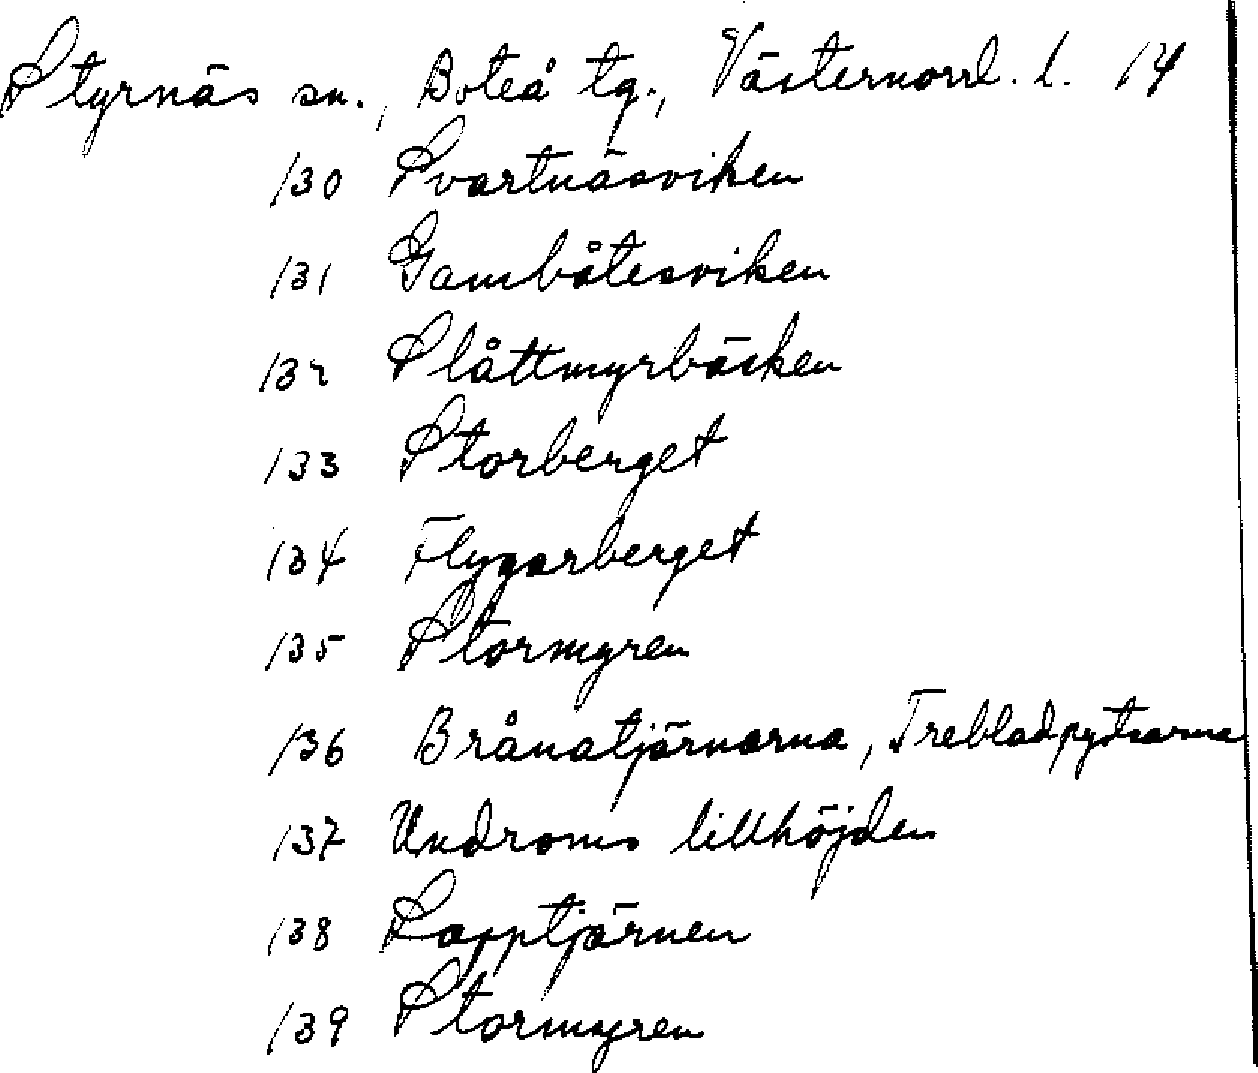 Styrnäs sn., Boteå tg., Västernorrl. l. 14
130 Svartnäsviken
131 Gambåtesviken
132 Slåttmyrbäcken
133 Storberget
134 Flygarberget
135 Stormyren
136 Brånatjärnarna, Trebladpytsarna
137 Undroms lillhöjden
138 Lapptjärnen
139 Stormyren